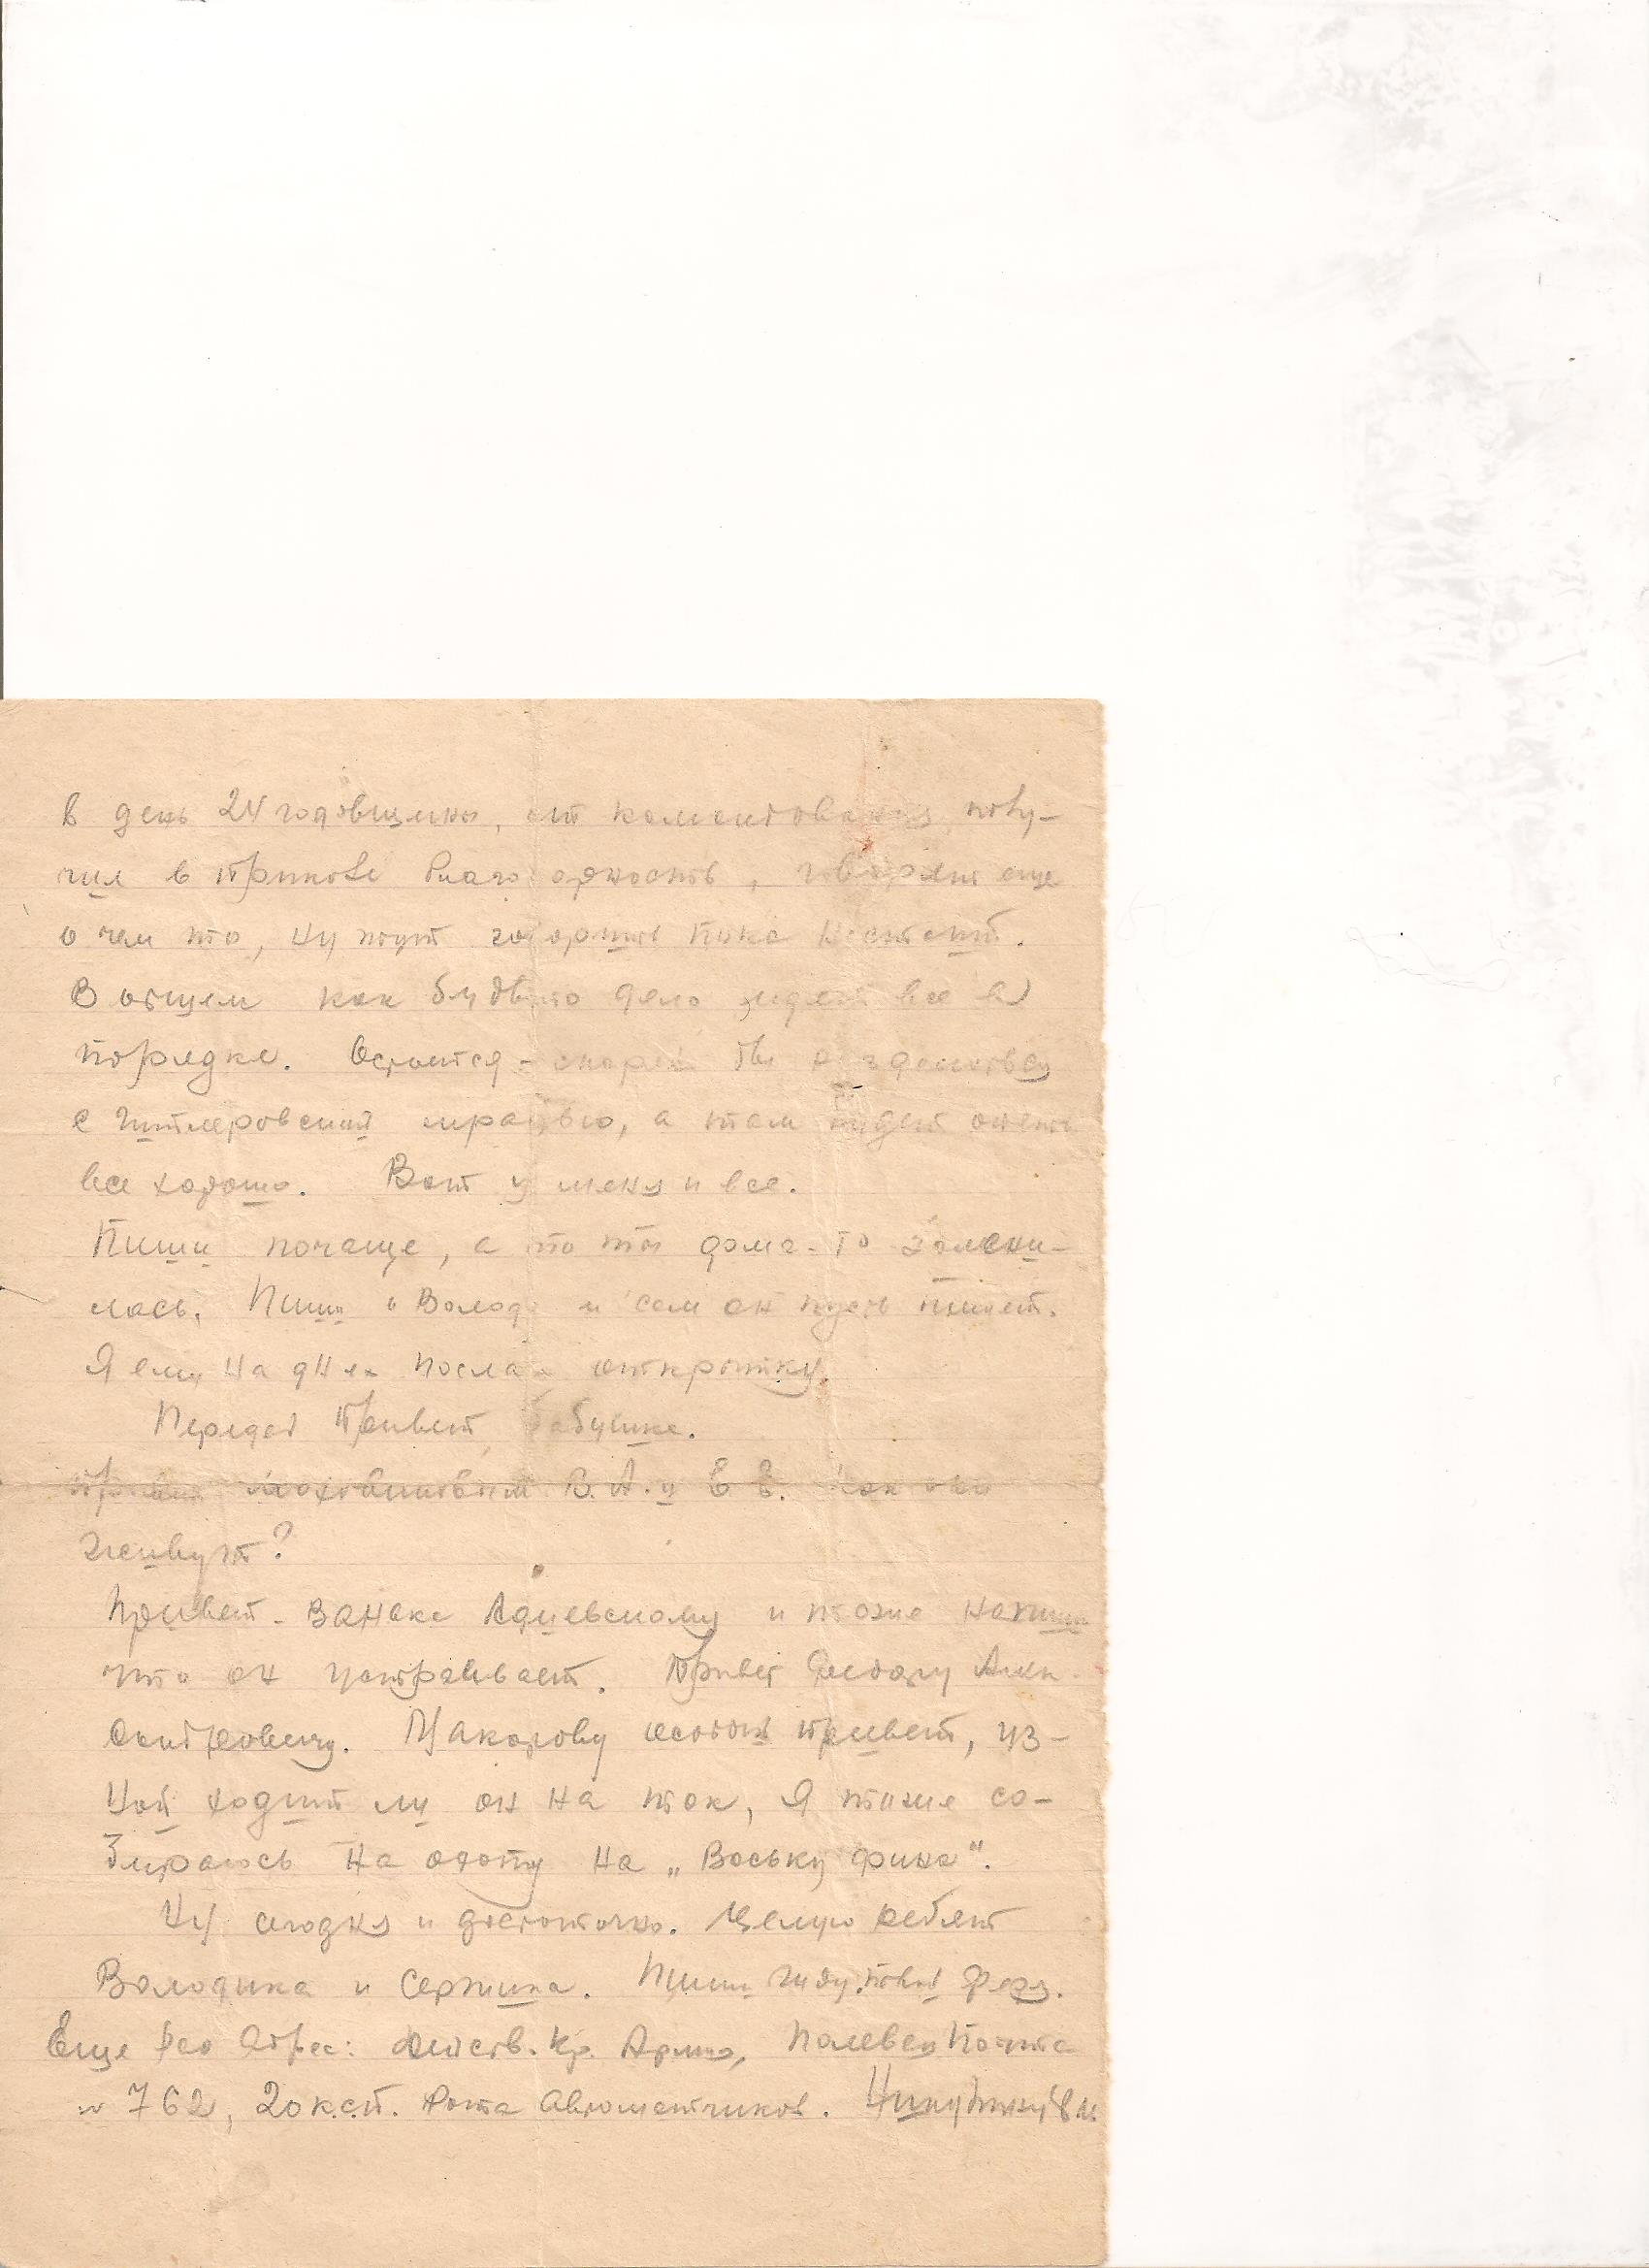 В день 24 годовщины, от командования, полу-
чил в приказе благодарность, говорят еще
о чем то, ну пусть говорить пока не стоит.
В общем как будьто дело идет все в
порядке. Остается - скорей бы
с гитлеровской мразью, а там будет опять
все хорошо. Вот у меня и все.
Пиши почаще, а то ты дома-то залени-
лась. Пиши о Володе и сам он пусть пишет.
Я ему на днях послал открытку.
Передай привет бабушке.
Привет В. А. и Е. Е. как они
живут?
Привет - Ваньке и тоже напиши
что он устраивает. Привет Федору Алек-
сандровичу. Макарову особый привет, уз-
най ходит ли он на ток, я тоже со-
бираюсь на охоту на „Ваську фина".
Ну сегодня и достаточно. Целую ребят
Володика и Сержика. Пиши жду.
Еще раз адрес: Действ. Кр. Армия, Полевая Почта
№ 762, 20 к.с.п. Рота Автоматчиков.